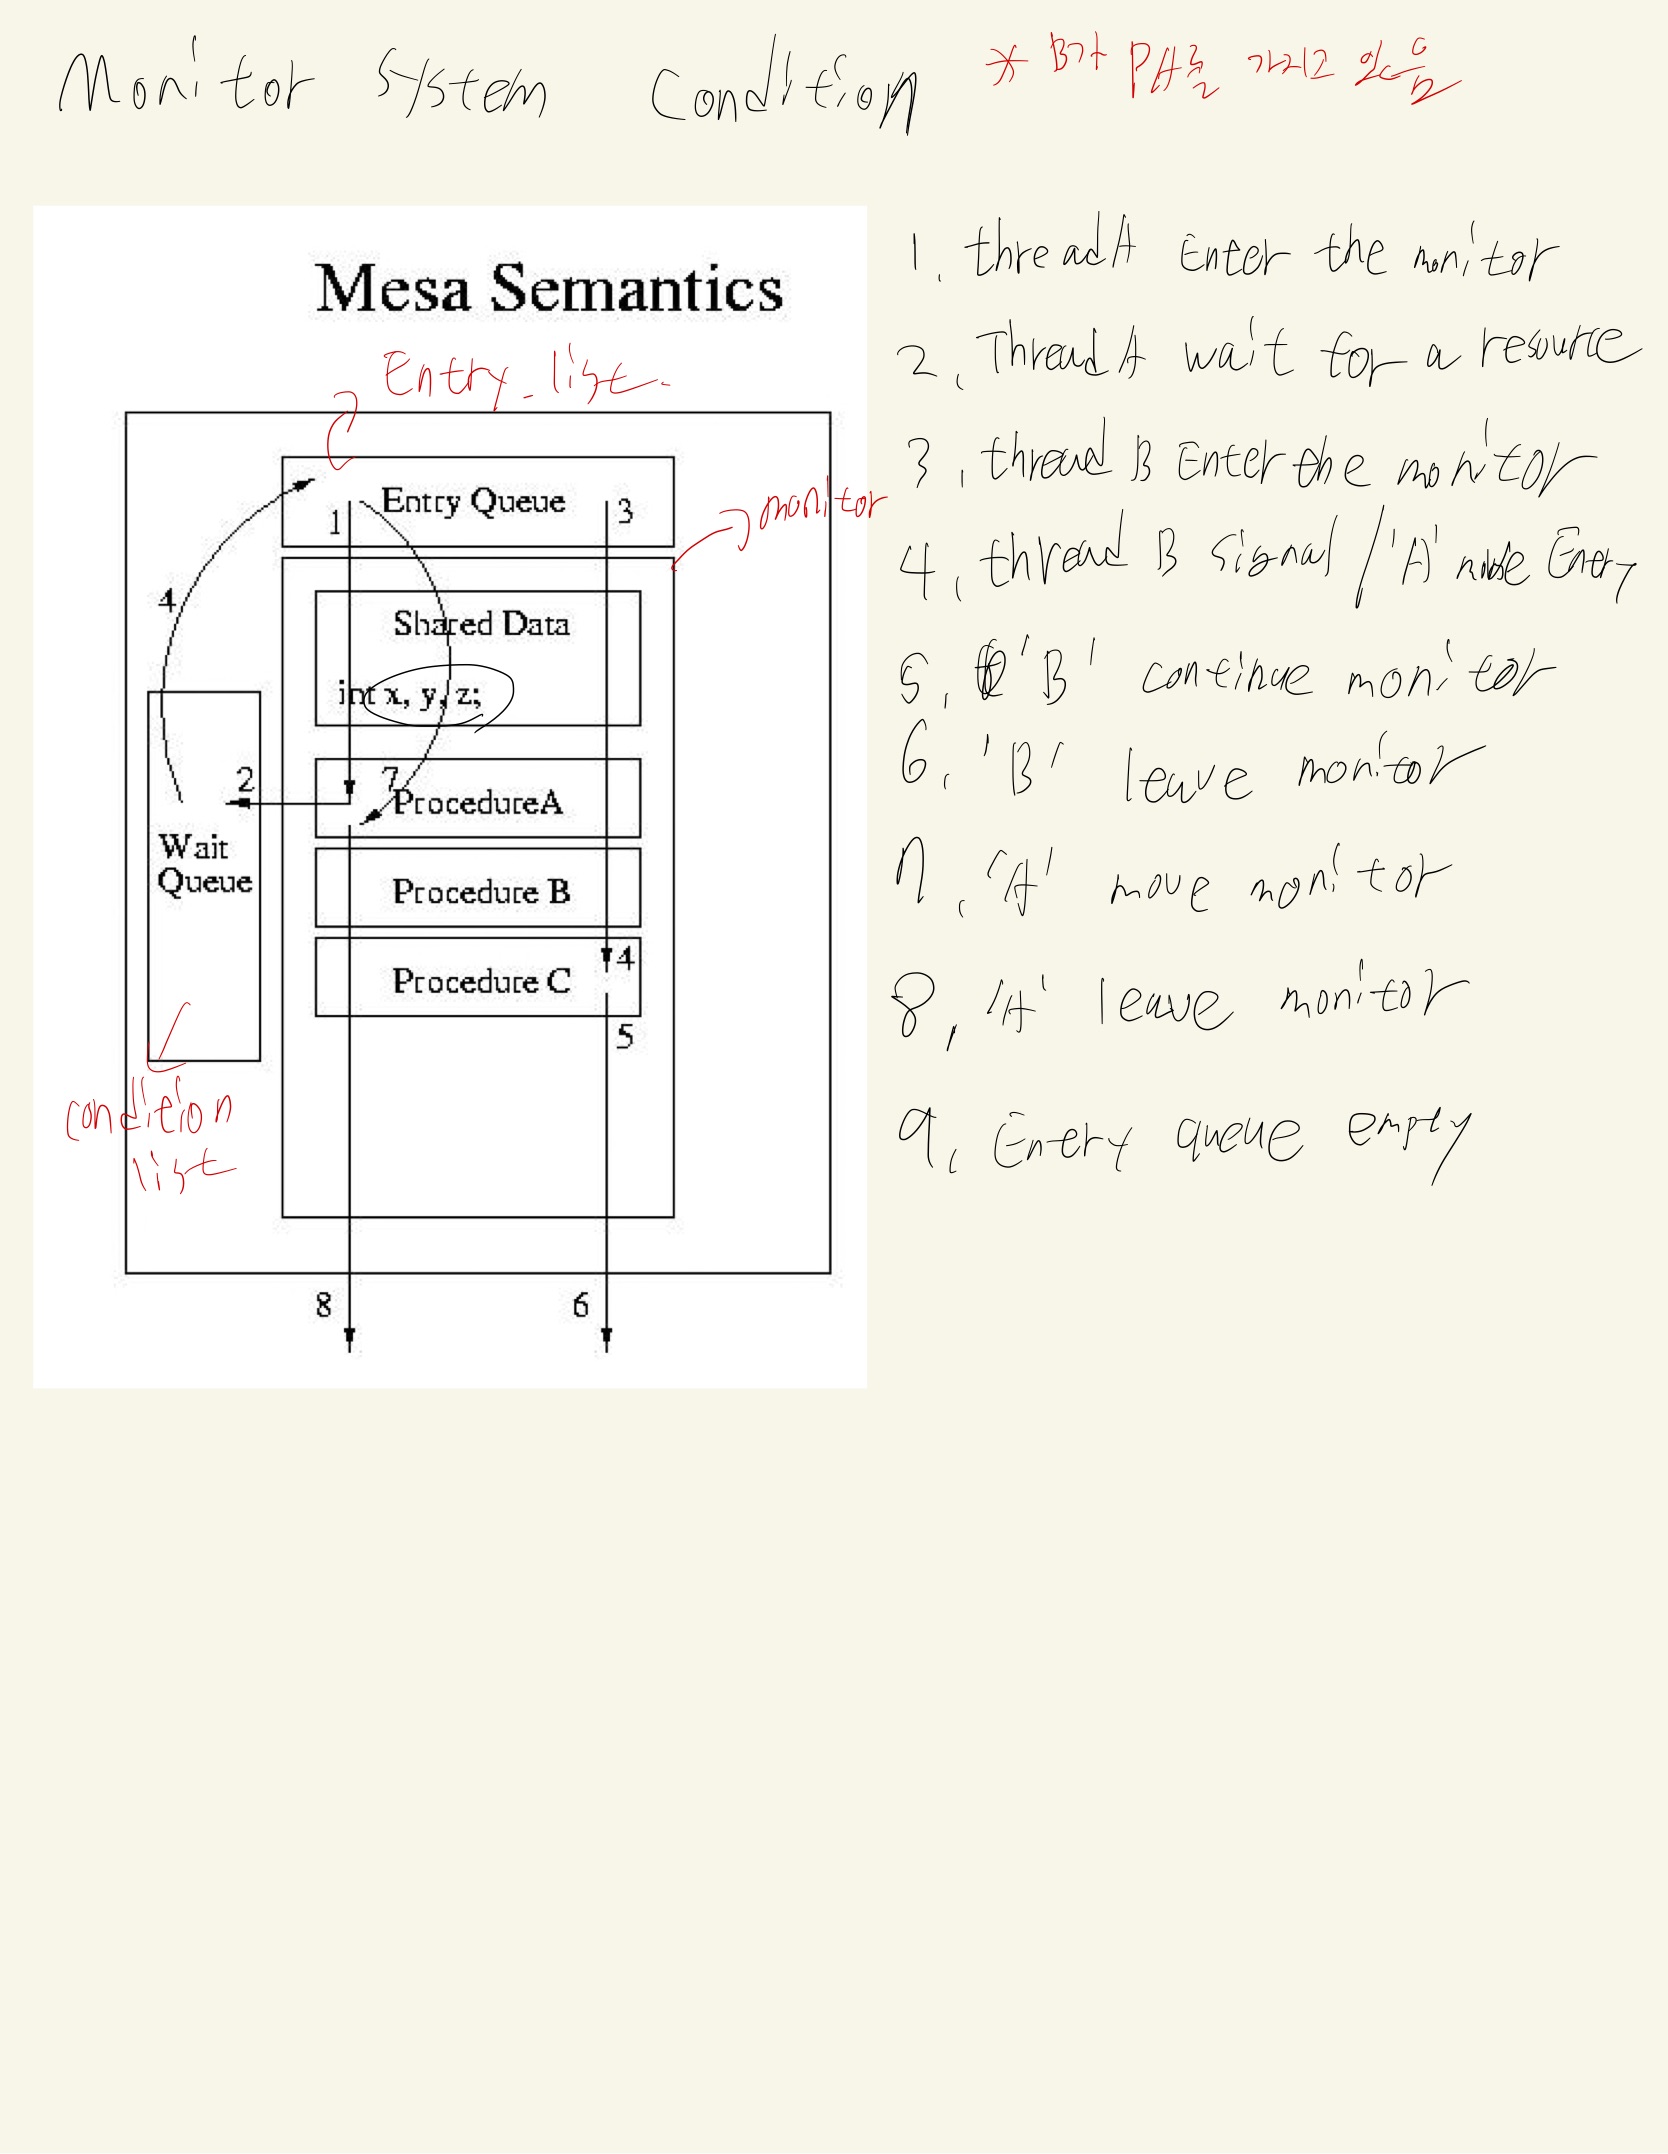 Monitor System Condition * B가 PA를 가지고 있음
Mesa Semantics
Entry_list.
Entry Queue
1
3
monitor
4
Shared Data
int x, y, z;
2
7
ProcedureA
Wait
Queue
Procedure B
4
Procedure C
5
condition
list
8
6
1, thread A Enter the monitor
2, Thread A wait for a resource
3, thread B Enter the monitor
4, thread B signal / 'A' move Entry
5, 'B' continue monitor
6, 'B' leave monitor
7, 'A' move monitor
8, 'A' leave monitor
9, Entry queue empty